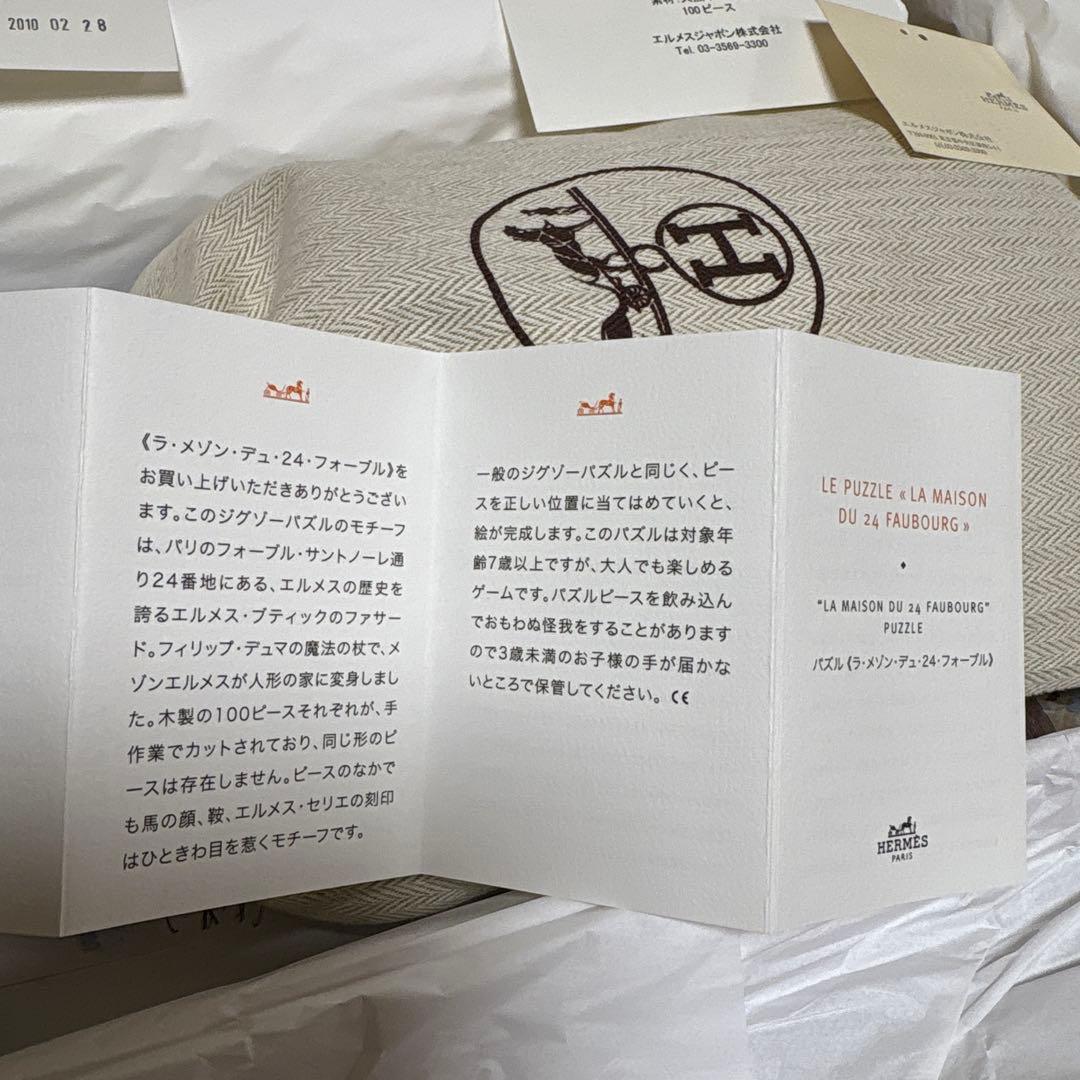 2010 02 28
100ピース
エルメスジャポン株式会社
Tel. 03-3569-3300
HERMÈS
PARIS
エルメスジャポン株式会社
H
《ラ・メゾン・デュ・24・フォーブル》を
お買い上げいただきありがとうござい
ます。このジグゾーパズルのモチーフ
は、パリのフォーブル・サントノーレ通
り24番地にある、エルメスの歴史を
誇るエルメス・ブティックのファサー
ド。フィリップ・デュマの魔法の杖で、メ
ゾンエルメスが人形の家に変身しまし
た。木製の100ピースそれぞれが、手
作業でカットされており、同じ形のピ
ースは存在しません。ピースのなかで
も馬の顔、鞍、エルメス・セリエの刻印
はひときわ目を惹くモチーフです。
一般のジグゾーパズルと同じく、ピー
スを正しい位置に当てはめていくと、
絵が完成します。このパズルは対象年
齢7歳以上ですが、大人でも楽しめる
ゲームです。パズルピースを飲み込ん
でおもわぬ怪我をすることがあります
ので3歳未満のお子様の手が届かな
いところで保管してください。 CE
LE PUZZLE « LA MAISON
DU 24 FAUBOURG »
"LA MAISON DU 24 FAUBOURG"
PUZZLE
パズル《ラ・メゾン・デュ・24・フォーブル》
HERMÈS
PARIS